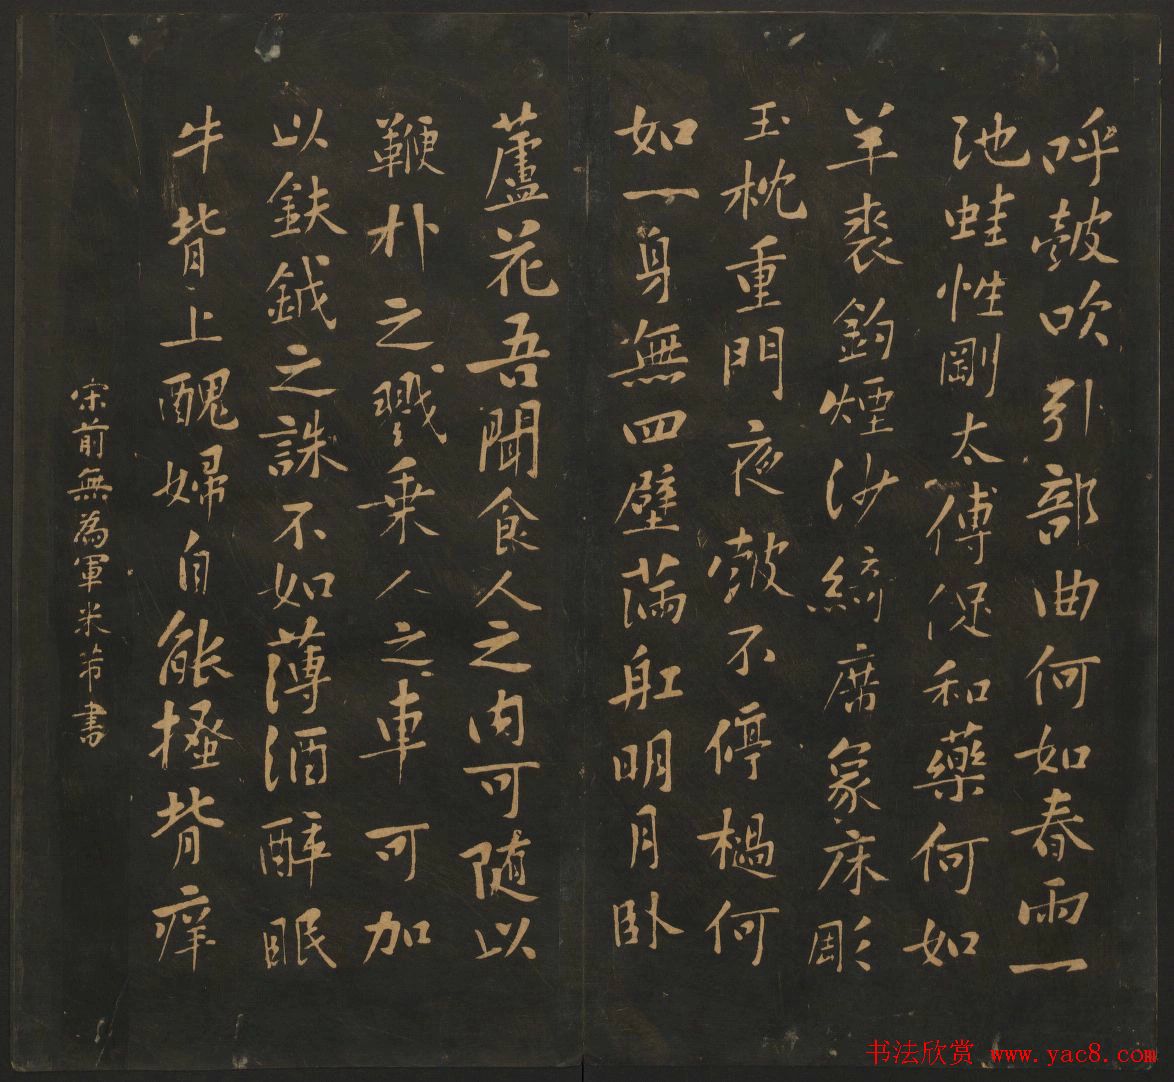 呼皷吹引部曲何如春雨一
池蛙性剛太傅促和藥何如
羊裘釣煙沙綺席象床彫
玉枕重門夜皷不停檛何
如一身無四壁滿舡明月臥
蘆花吾聞食人之肉可隨以
鞭朴之戮乘人之車可加
以鈇鉞之誅不如薄酒醉眠
牛背上醜婦自能搔背痒
宋前無為軍米芾書
书法欣赏 www.yac8.com